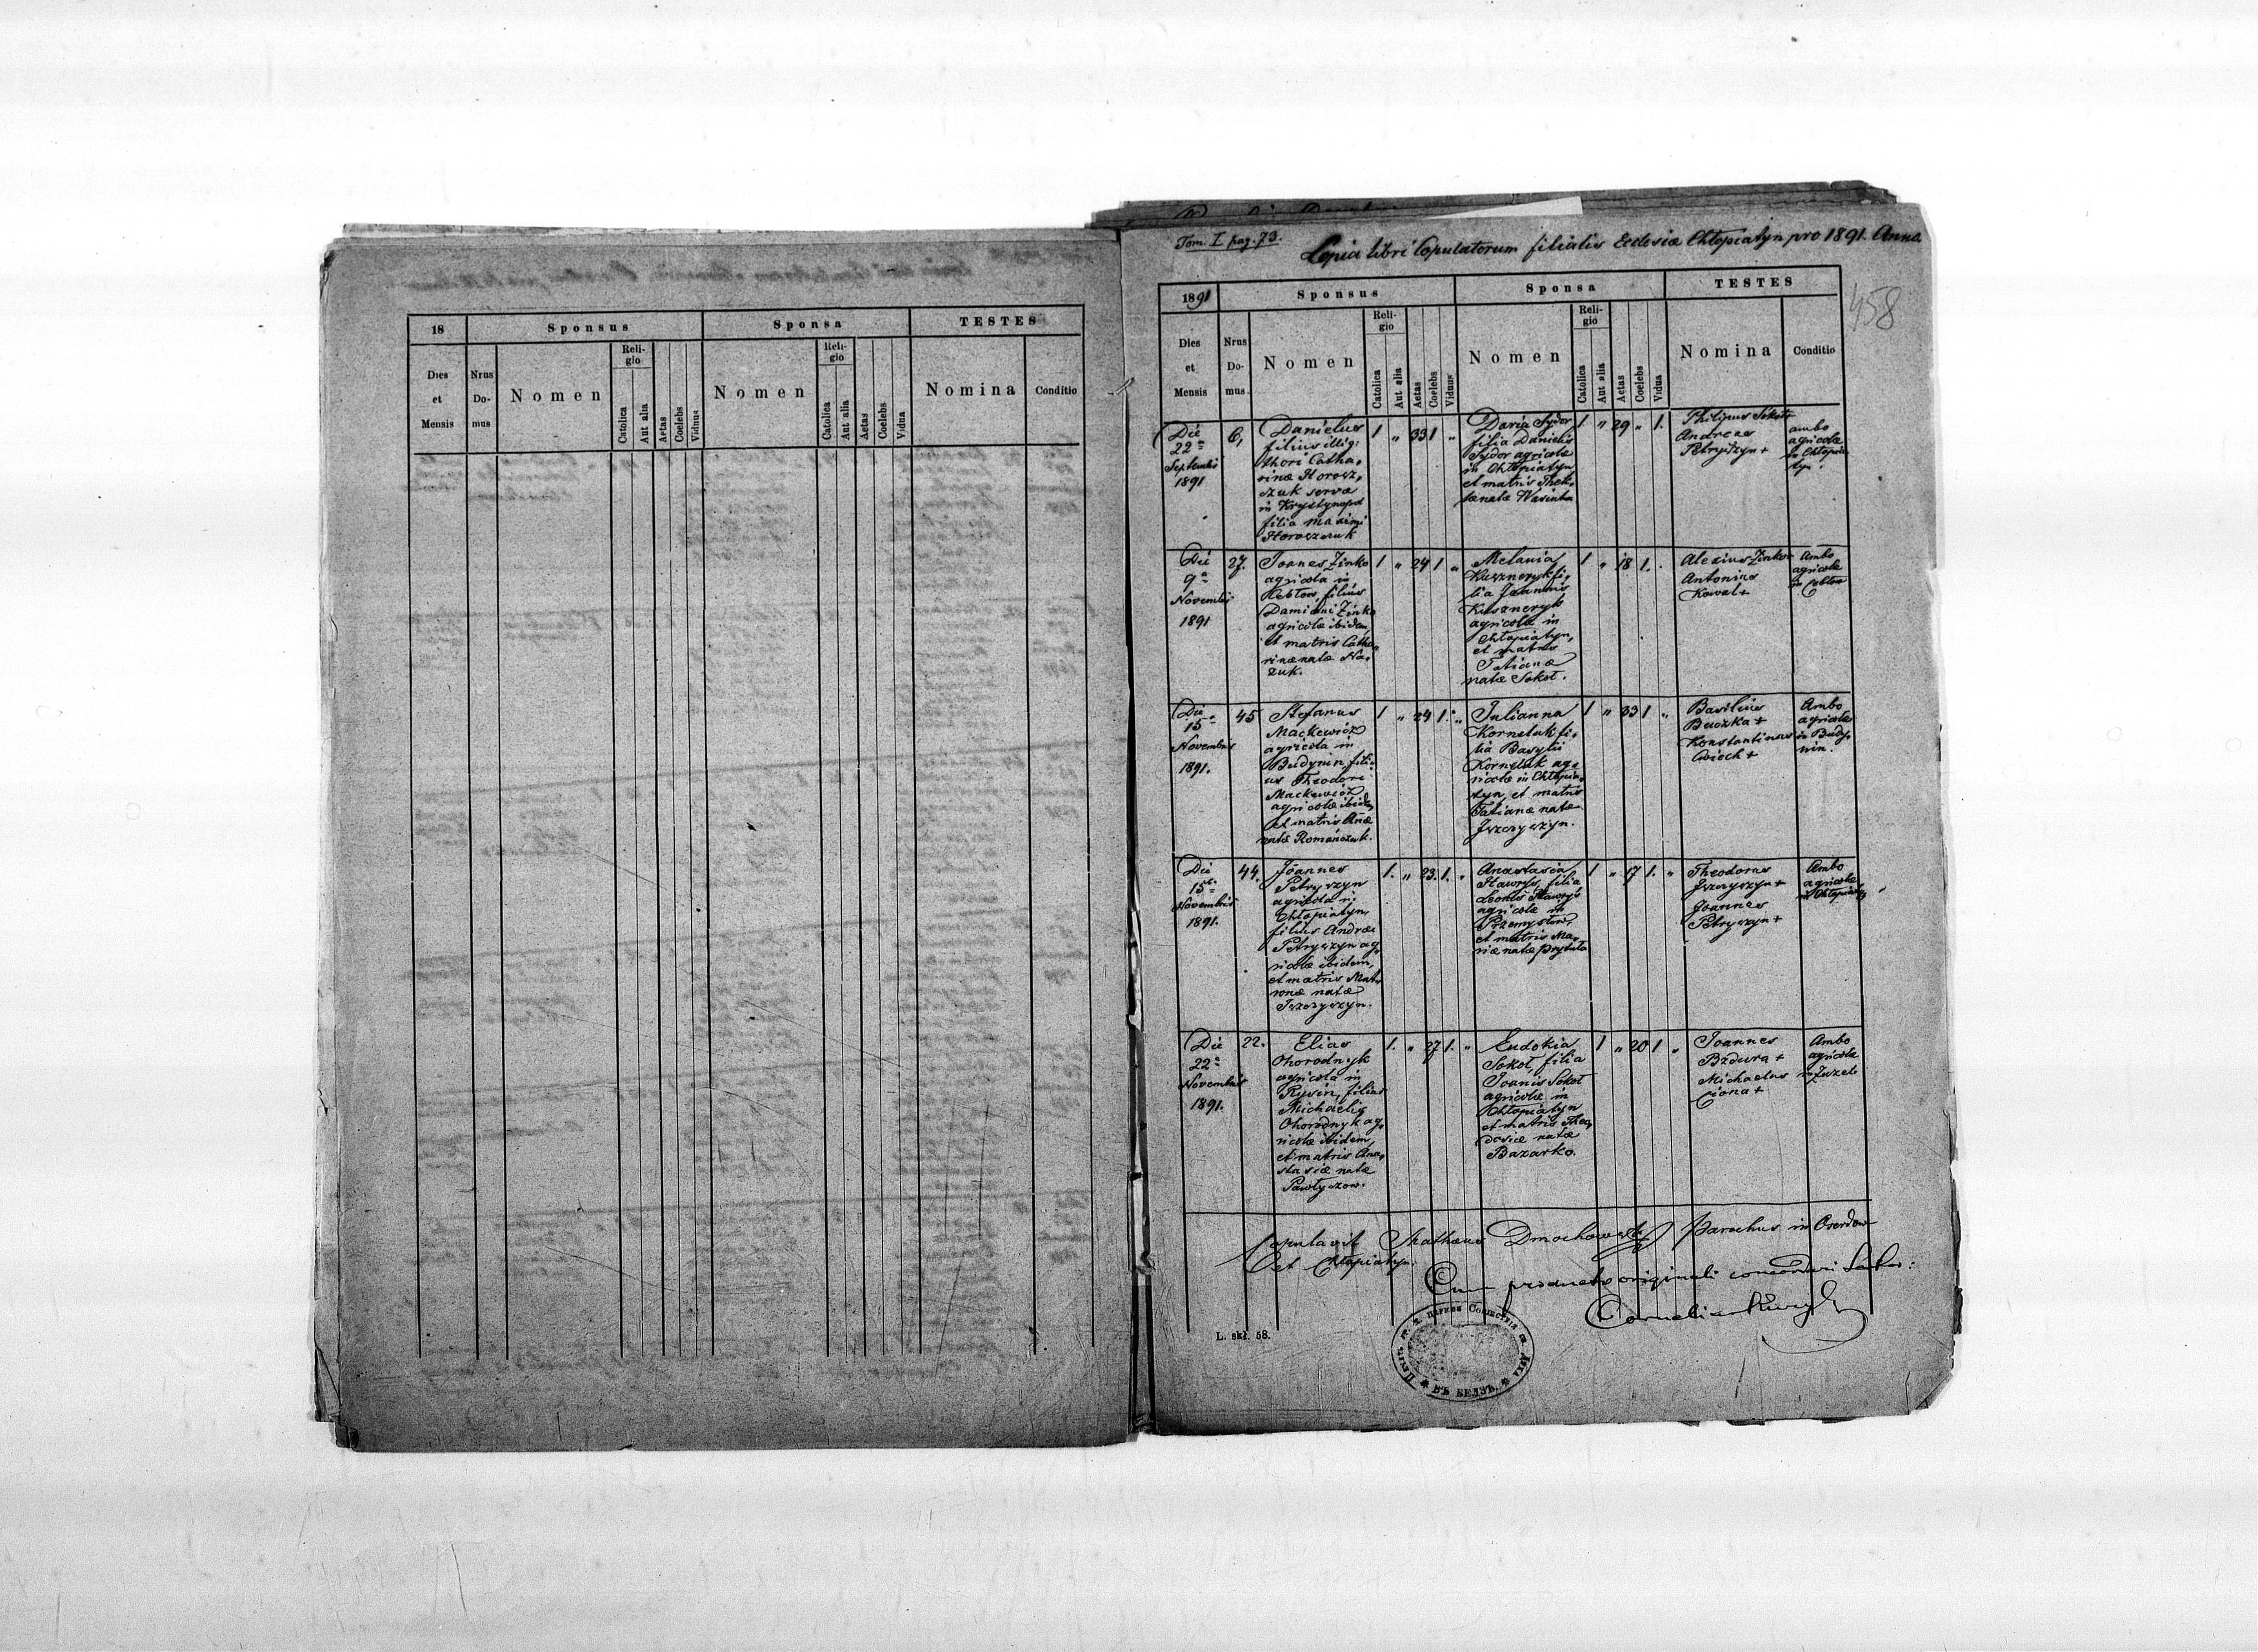 18
Sponsus
Sponsa
TESTES
Dies
et
Mensis
Nrus
Do-
mus
Nomen
Reli-
gio
Catolica
Aut alia
Aetas
Coelebs
Viduus
Nomen
Reli-
gio
Catolica
Aut alia
Aetas
Coelebs
Vidua
Nomina
Conditio
Tom. I. pag. 73.
Copia libri Copulatorum filialis Ecclesiæ Chłopiatyn pro 1891. Anno
458
1891
Sponsus
Sponsa
TESTES
Dies
et
Mensis
Nrus
Do-
mus
Nomen
Reli-
gio
Catolica
Aut alia
Aetas
Coelebs
Viduus
Nomen
Reli-
gio
Catolica
Aut alia
Aetas
Coelebs
Vidua
Nomina
Conditio
Die
22a
Septembris
1891
6,
Danielus
filius illig:
thori Catha,
rinæ Horosz,
czuk servæ
in Krystynopol
filia Maximi
Horoszczuk
1 " 33 1 "
Daria Sydor
filia Danielis
Sydor agricolæ
in Chłopiatyn
et matris Thek,
læ natæ Wasinka
1 " 29 " 1.
Philipus Sokoł +
Andreas
Petryszyn +
ambo
agricolæ
in Chłopia
tyn.
Die
9a
Novembris
1891
27.
Joanes Zinko
agricola in
Cebłow, filius
Damiani Zinko
agricolæ ibidem
et matris Catha,
rinæ natæ Na,
zuk.
1 " 24 1 "
Melania
Kuszneryk fi,
lia Joannis
Kuszneryk
agricolæ in
Chłopiatyn,
et matris
Tatianæ
natæ Sokoł.
1 " 18 1.
Alexius Zinko +
Antonius
Kowal +
Ambo
agricolæ
in Cebłow
Die
15a
Novembris
1891.
45
Stefanus
Mackewicz
agricola in
Budynin, fili,
us Theodori
Mackewicz
agricolæ ibidem
et matris Anæ
natæ Romańczuk.
1 " 24 1. "
Julianna
Korneluk fi,
lia Basylii
Korneluk ag,
ricolæ in Chłopia,
tyn, et matris
Tatianæ natæ
Jszczyszyn.
1 " 33 1 "
Basilius
Buczka +
Konstantinus
Cwioch +
Ambo
agricolæ
in Budy,
nin.
Die
15a
Novembris
1891.
44.
Joannes
Petryszyn
agricola in
Chłopiatyn,
filius Andreæ
Petryszyn ag,
ricolæ ibidem,
et matris Mat,
ronæ natæ
Jszczyszyn.
1. " 23. 1. "
Anastasia
Hawryś, filia
Leontis Hawryś
agricolæ in
Przemysłow,
et matris Ma,
riæ natæ Prytuła
1 " 17 1. "
Theodorus
Jszczyszyn +
Joannes
Petryszyn +
Ambo
agricolæ
in Chłopiatyn
Die
22a
Novembris
1891.
22.
Elias
Ohorodnyk
agricola in
Rusin, filius
Michaelis
Ohorodnyk ag,
ricolæ ibidem,
et matris Ana,
stasiæ natæ
Pawłyszow.
1. " 27 1. "
Eudokia
Sokoł, filia
Joanis Sokoł
agricolæ in
Chłopiatyn
et matris Theo,
dosiæ natæ
Bazarko.
1 " 20 1 "
Joannes
Bzdura +
Michaelus
Ciona +
Ambo
agricolæ
in Żużel
Copulavit Mathæus Dmochowski Parochus in Oserdow
et Chłopiatyn.
Cum producto originali concordari
L. skł. 58.
ВЪ БЕЛЗѢ